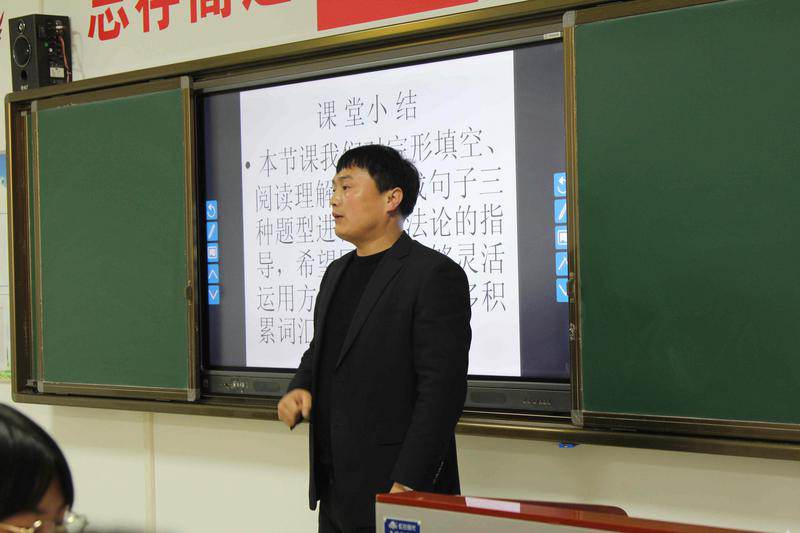 志存高远
课堂小结
• 本节课我们 完形填空、
阅读理解 成句子三
种题型进 法论的指
导，希望 够灵活
运用方 多积
累词汇